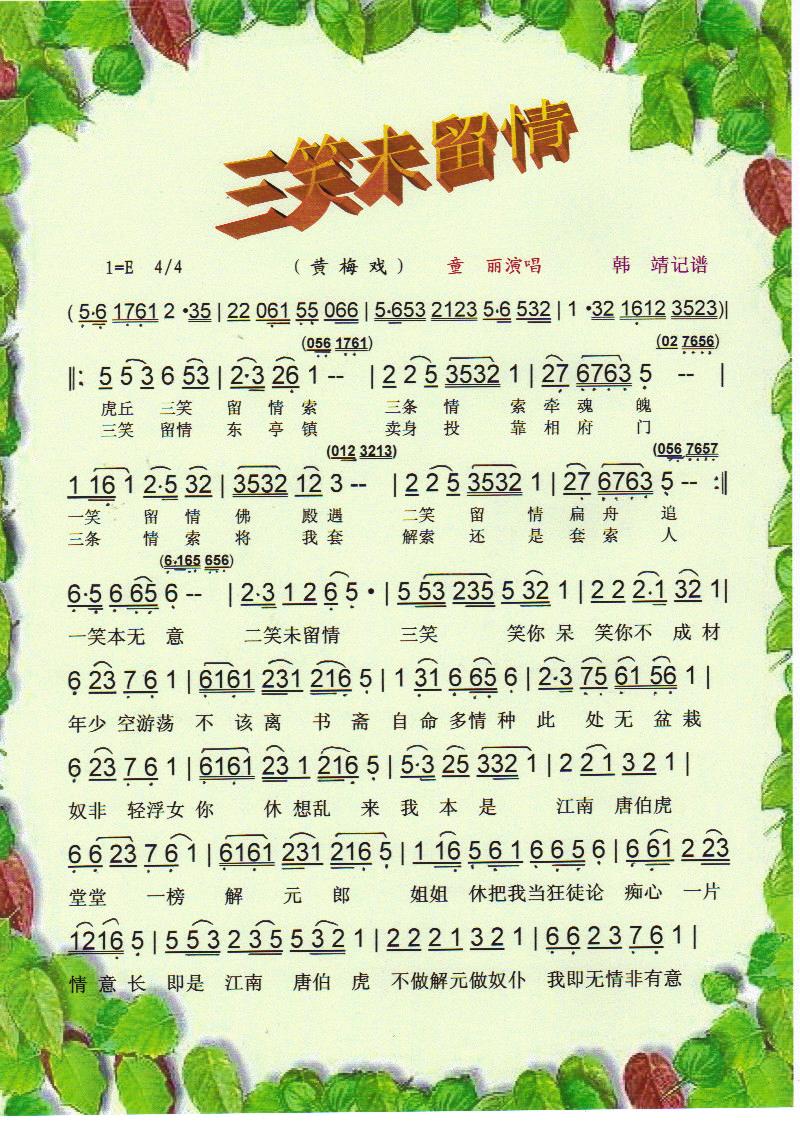 三笑未留情
1=E 4/4 (黄梅戏) 童 丽演唱 韩 靖记谱
(5·6 1761 2 ·35 | 22 061 55 066 | 5·653 2123 5·6 532 | 1 ·32 1612 3523)|
(056 1761) (02 7656)
‖: 5 5 3 6 53 | 2·3 26 1 -- | 2 2 5 3532 1 | 27 6763 5 -- |
虎丘 三笑 留 情 索 三条 情 索 牵 魂 魄
三笑 留情 东 亭 镇 卖身 投 靠 相 府 门
(012 3213) (056 7657
1 16 1 2·5 32 | 3532 12 3 -- | 2 2 5 3532 1 | 27 6763 5 -- :‖
一笑 留 情 佛 殿 遇 二笑 留 情 扁 舟 追
三条 情 索 将 我 套 解索 还 是 套 索 人
(6·165 656)
6·5 6 65 6 -- | 2·3 1 2 6 5 · | 5 53 235 5 32 1 | 2 2 2·1 32 1|
一笑本无 意 二笑未留情 三笑 笑你 呆 笑你不 成 材
6 23 7 6 1 | 6161 231 216 5 | 1 31 6 65 6 | 2·3 75 61 56 1 |
年少 空游荡 不 该 离 书 斋 自 命 多情 种 此 处 无 盆 栽
6 23 7 6 1 | 6161 23 1 216 5 | 5·3 25 332 1 | 2 2 1 3 2 1 |
奴非 轻浮女 你 休 想乱 来 我 本 是 江南 唐伯虎
6 6 23 7 6 1 | 6161 231 216 5 | 1 16 5 6 1 6 6 5 6 | 6 61 2 23
堂堂 一榜 解 元 郎 姐姐 休把我当狂徒论 痴心 一片
1216 5 | 5 5 3 2 3 5 5 3 2 1 | 2 2 2 1 3 2 1 | 6 6 2 3 7 6 1 |
情 意 长 即是 江南 唐伯 虎 不做解元做奴仆 我即无情非有意